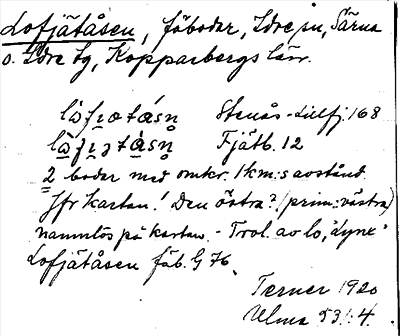 Lofjätåsen, fäbodar, Idre sn, Särna
o. Idre tg, Kopparbergs län.
Stenås-Lillfj. 168
Fjätb. 12
2 bodar med omkr. 1 km:s avstånd.
Jfr kartan! Den östra? (prim: västra)
namnlös på kartan. - Trol. av lo, "lynx"
Lofjätåsen fäb. G 76
Terner 1920
Ulma 53:4.